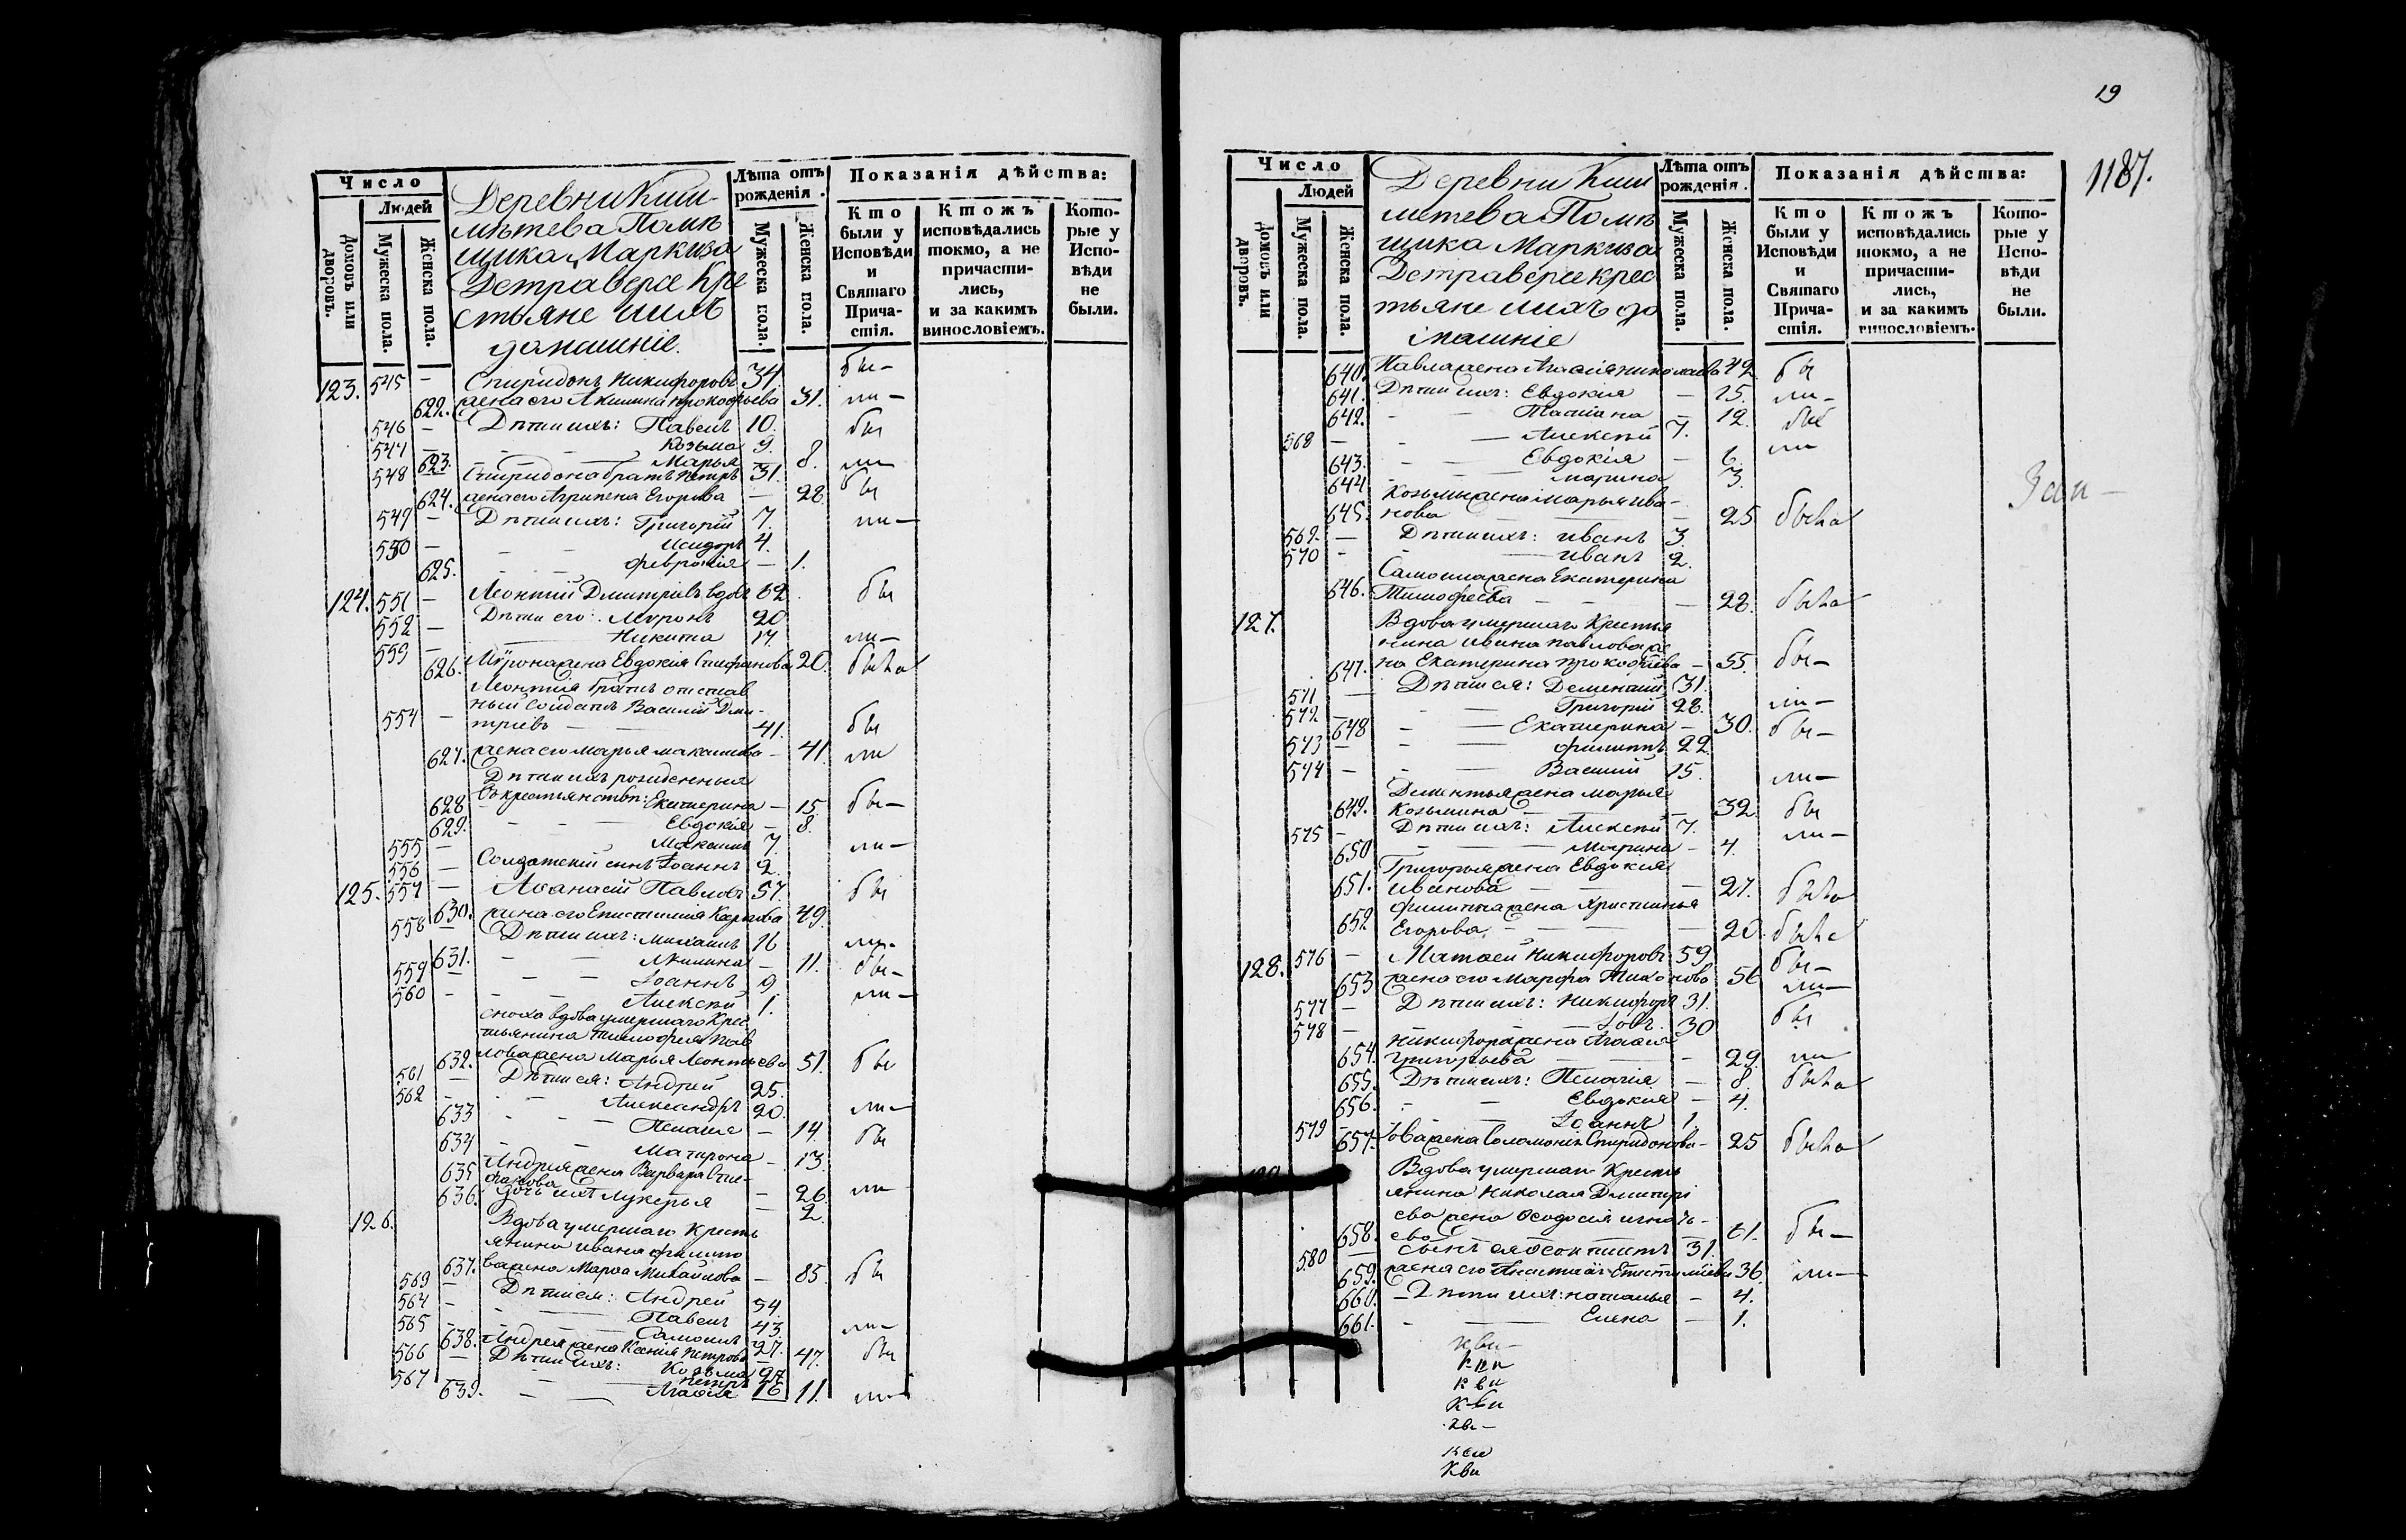 Число
Людей
Домовъ или дворовъ.
Мужеска пола.
Женска пола.
Деревни Киш-
мѣтева Помѣ
щика Маркиза
Детраверсе Кре
стьяне ихъ
домашніе.
Лѣта отъ рожденія.
Мужеска пола.
Женска пола.
Показанія дѣйства:
Кто были у Исповѣди и Святаго Прича-стія.
Ктожъ исповѣдались токмо, а не причасти-лись, и за какимъ винословіемъ.
Кото-рые у Испо-вѣди не были.
123. 545 — Спиридонъ Никифоровъ 34. бы-
622. жена его Акилина прокофьева 31. ли-
546 — Дѣти ихъ: Павелъ 10. бы
547 — Козьма 9.
623. Марья 8. ли
548 — Спиридона братъ Петръ 31. бы
624. жена его Агрипена Егорова — 28
549 — Дѣти ихъ: Григорій 7. ли-
550 — Исидоръ 4.
625. Феврония — 1.
124. 551 — Леонтій Дмитріевъ вдовъ 62. бы
552 — Дѣти его: Миронъ 20
553 — Никита 17 ли-
626. Мирона жена Евдокія Стефанова 20. была
Леонтия братъ отстав
ный солдатъ Василій Дми-
554 — тріевъ — 41. бы
627. жена его Марья макашова — 41. ли
Дѣти ихъ рожденныя
628 въ крестьянствѣ: Екатерина — 15. бы-
629. Евдокія — 8.
555 — 7. ли-
556 — Солдатскій сынъ Іоаннъ 2.
125. 557 — Аѳанасій Павловъ 57. бы
630. жена его Епистимия Карпова 49.
558 — Дѣти ихъ: Михаилъ 16 ли-
631. Акилина — 11. бы-
559 — Іоаннъ 9
560 — Алексѣй 1. ли-
сноха вдова умершаго Крес
тьянина Тимофея Пав
632. лова жена Марья Леонтьева 51. бы
561 — Дѣти ея: Андрей 25.
562 — Александръ 20. ли-
633 Пелагія — 14. бы
634 Матрона — 13.
635 Андрея жена Варвара Сте-
фанова — 26. ли
636. дочь ихъ Лукерья — 2.
126. Вдова умершаго Кресть
янина Ивана Филипо
637. ва жена Марѳа Михайлова — 85. бы
563 — Дѣти ея: Андрей 54.
564 — Павелъ 43.
565 — Самоилъ 27. ли-
638. Андрея жена Ксения Петрова 47. бы
566 — Дѣти ихъ: Козьма 27
567 Петръ 16
639. Агаѳія 11. ли
19
1187.
Число
Людей
Домовъ или дворовъ.
Мужеска пола.
Женска пола.
Деревни Киш
метева Помѣ
щика Маркиза
Детраверсе крес
тьяне ихъ до
машніе
Лѣта отъ рожденія.
Мужеска пола.
Женска пола.
Показанія дѣйства:
Кто были у Исповѣди и Святаго Прича-стія.
Ктожъ исповѣдались токмо, а не причасти-лись, и за какимъ винословіемъ.
Кото-рые у Испо-вѣди не были.
640. Павла жена Агаѳія николаева 42. бы
641. Дѣти ихъ: Евдокія — 15. ли-
642. Татіана — 12. бы
568 — Алексѣй 7.
643. Евдокія — 6. ли
644 марина 3.
Козьмы жена Марья Ива-
645. нова — 25 была
569. — Дѣти ихъ: иванъ 3.
570 — иванъ 2.
Самоила жена Екатерина
646. Тимофеева — 28. была
127. Вдова умершаго Крестья
нина Ивана Павлова же
647. на Екатерина прокофьева — 55. бы-
571 — Дѣти ея: Дементій 31.
572 — Григорій 28. ли-
648 Екатерина — 30. бы-
573 — филиппъ 22
574 — Василій 15. ли-
Дементья жена марья
649. Козьмина — 32. бы
575 — Дѣти ихъ: Алексѣй 7. ли-
650 Марина — 4.
Григорья жена Евдокія
651. Иванова — 27. была
филиппа жена Христинья
652 Егорова — 20. была
128. 576 — Матѳей Никифоровъ 59. бы-
653 жена его Марфа Тихонова 56 ли-
577 — Дѣти ихъ: Никифоръ 31.
578 — Іовъ. 30 бы
Никифора жена Агаѳія
654. Григорьева — 29. ли
655. Дѣти ихъ: Пелагія — 8. была
656. Евдокия — 4.
579 — Іоаннъ 1.
657. Іова жена Соломония Спиридонова — 25 была
129. Вдова умершаго Кресть
янина Николая Дмитрі
ева жена Ѳеодосія игнать-
658. ева — 61. бы-
580 — сынъ ея Ѳеоктистъ 31.
659. жена его Анастасія 36. ли-
660. — Дѣти ихъ: наталья — 4.
661. Елена — 1.